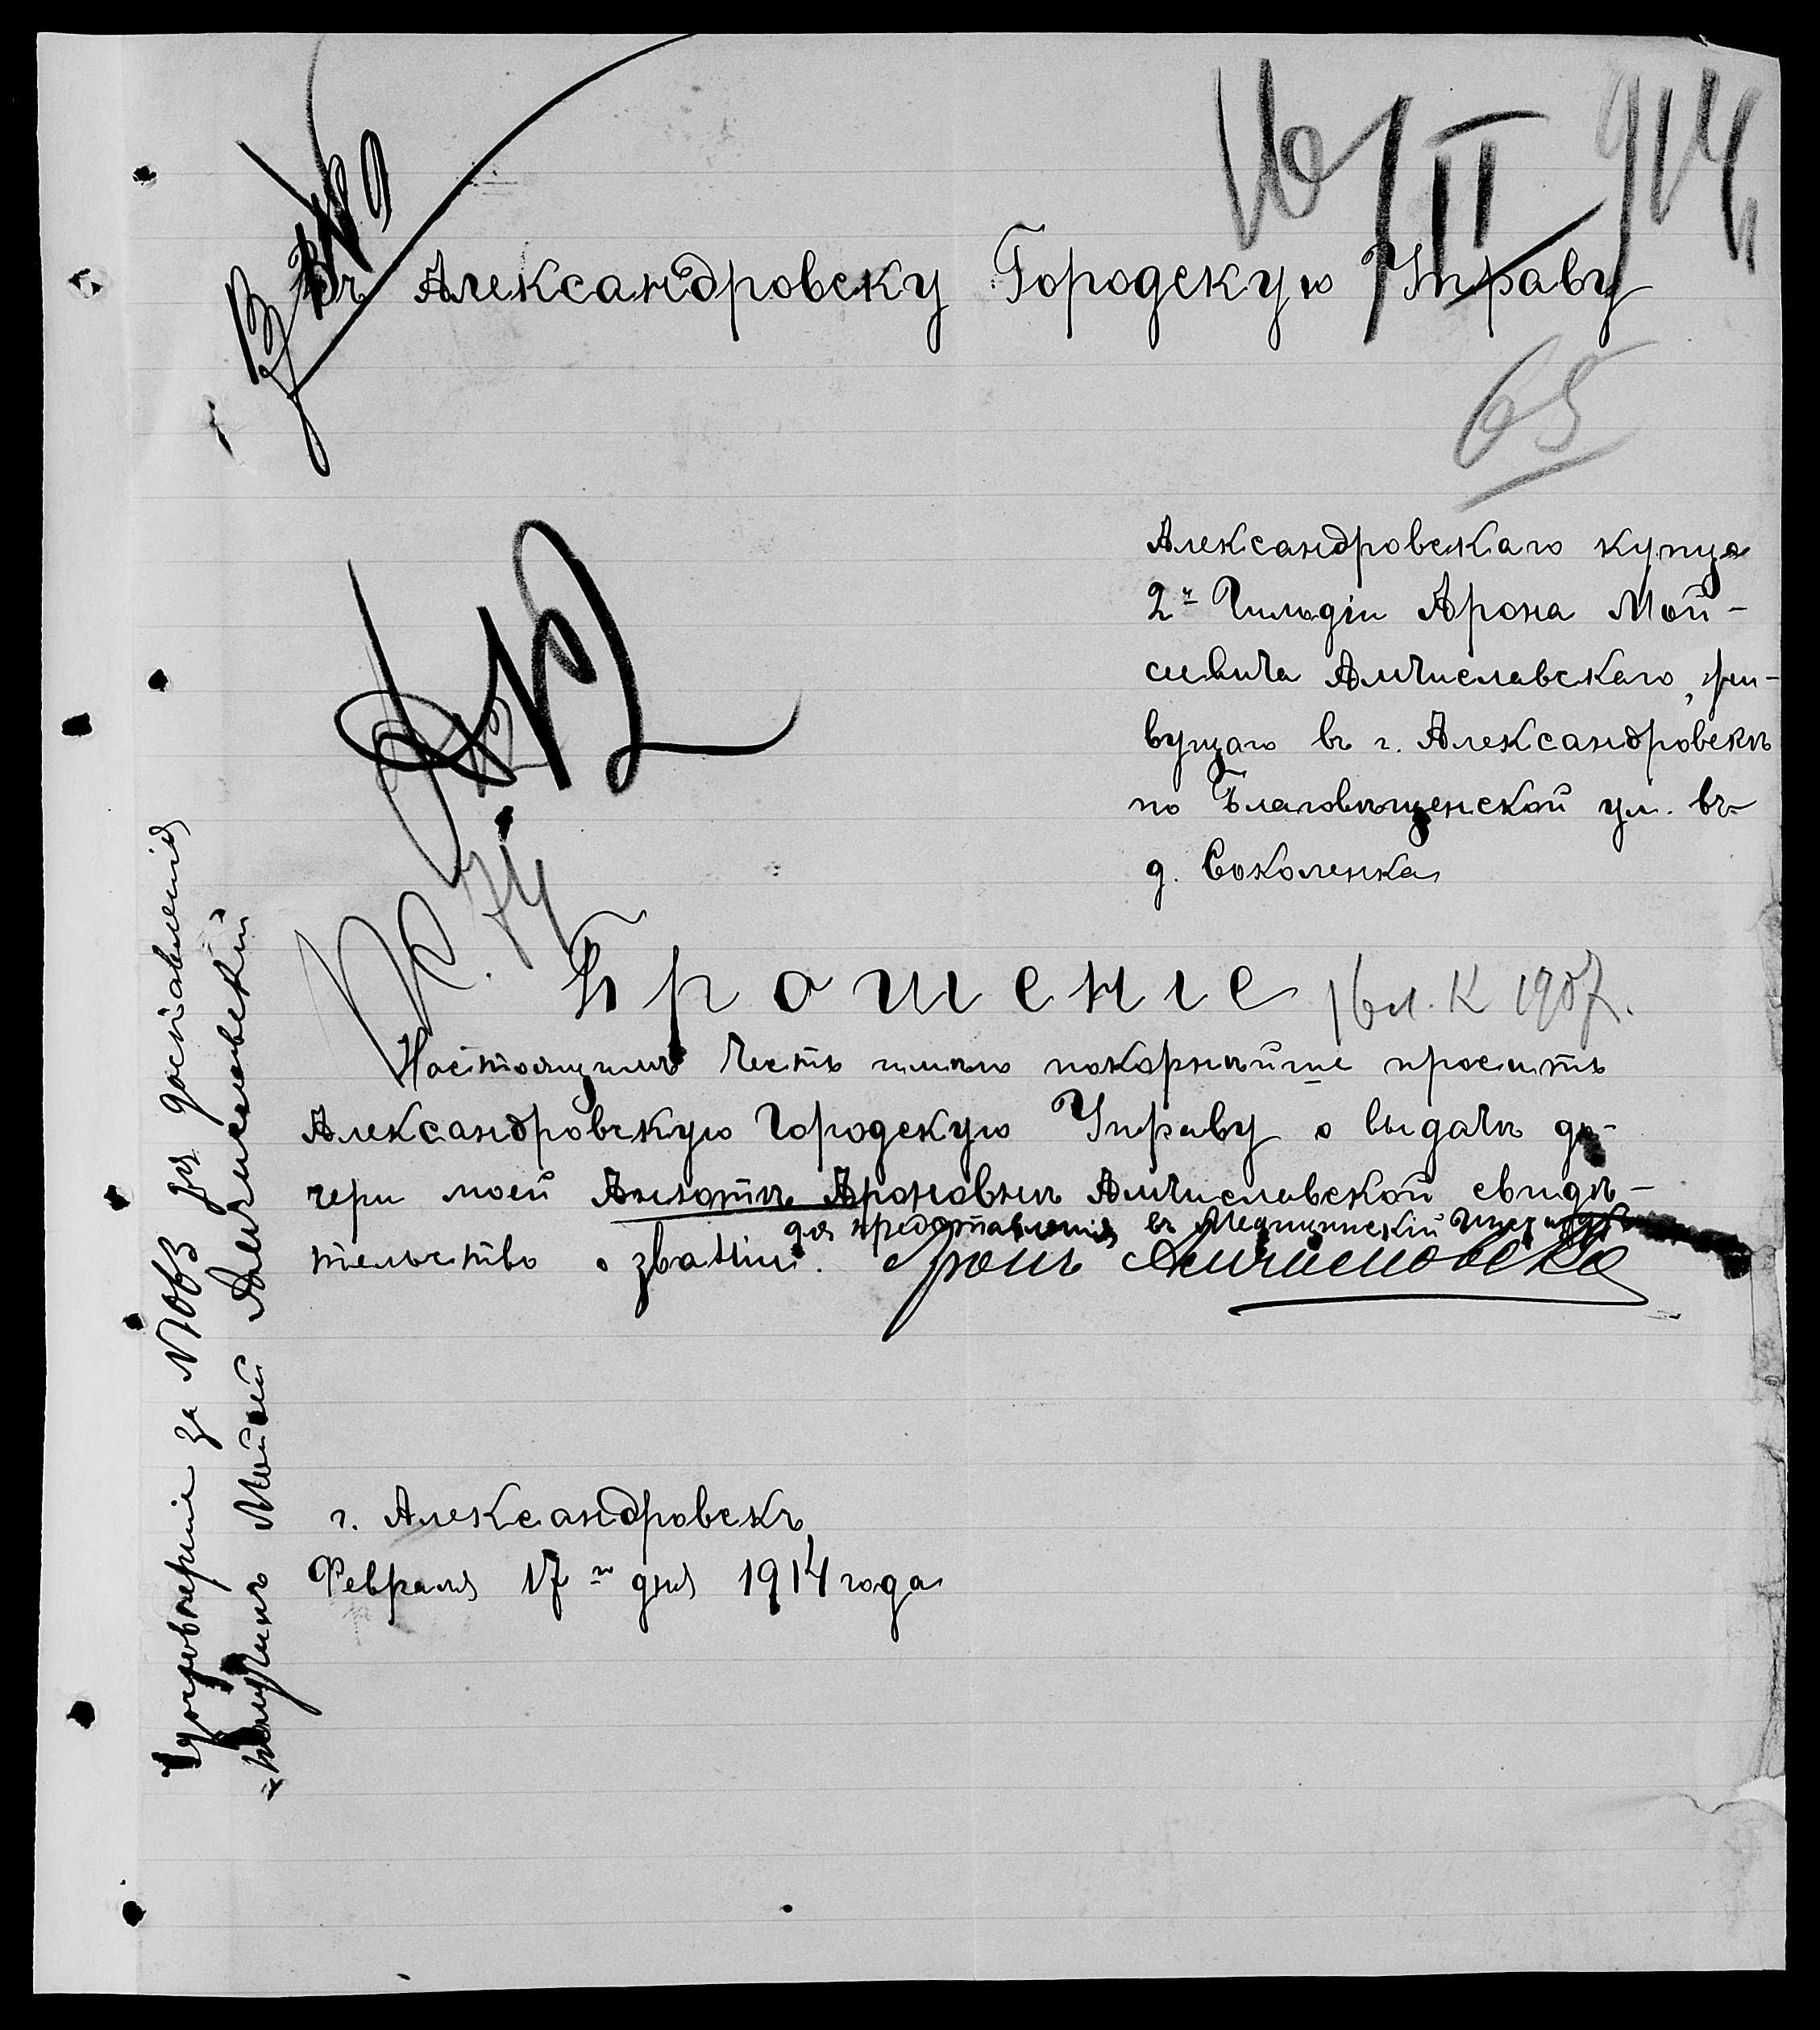 16/II 914
Въ Александровску Городскую Управу
65
Александровскаго купца
2й Гильдіи Арона Мой-
сеевича Амчиславскаго, жи-
вущаго въ г. Александровскѣ
по Благовѣщенской ул. въ
д. Соколенка
74
Прошеніе
16 л. К 1907.
Настоящимъ честь имѣю покорнѣйше просить
Александровскую Городскую Управу о выдачѣ до-
чери моей Ароновнѣ Амчиславской свидѣ-
для представленія въ Медицинскій
тельство о званіи. Аронъ Амчиславскій
г. Александровскъ
Февраля 17го дня 1914 года
Удостовѣреніе за № для доставленія
получилъ Мойсей Амчиславскій